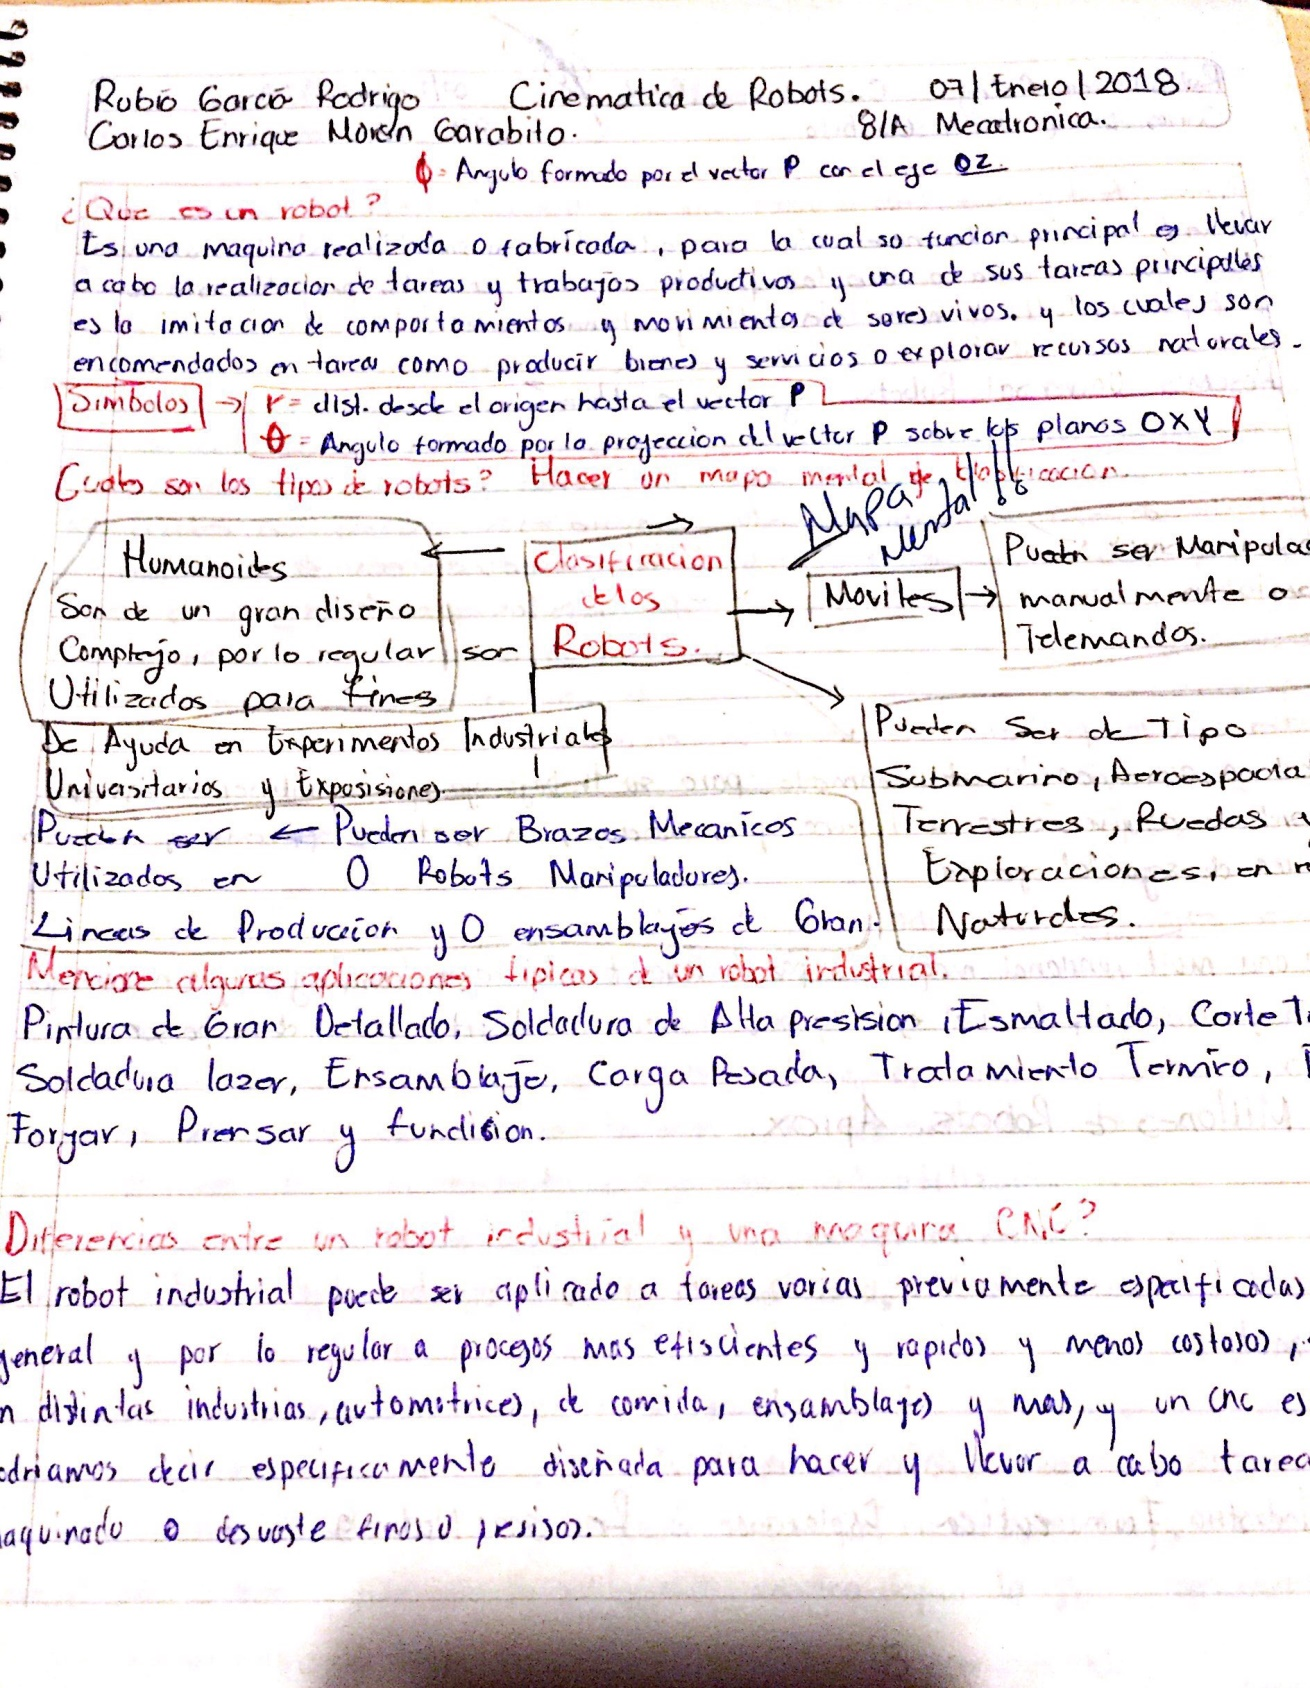 Rubio García Rodrigo Cinematica de Robots. 07/Enero/2018
Carlos Enrique Morán Garabito. 8/A Mecatronica.
ϕ= Angulo formado por el vector P con el eje OZ
¿Que es un robot?
Es una maquina realizada o fabricada, para la cual so funcion principal es llevar
a cabo la realizacion de tareas y trabajos productivos y una de sus tareas principales
es la imitacion de comportamientos y movimientos de seres vivos. y los cuales son
encomendados en tareas como producir bienes y servicios o explorar recursos naturales.
Simbolos → r = dist. desde el origen hasta el vector P
θ = Angulo formado por la proyeccion del vector P sobre los planos OXY
Cuales son los tipos de robots? Hacer un mapa mental de clasificacion.
Mapa
Mental!!
Clasificacion
delos
Robots.
Humanoides
Son de un gran diseño
Complejo, por lo regular son
Utilizados para fines
De Ayuda en Experimentos Industriales
Universitarios y Exposisiones
Moviles → Pueden ser Manipulas
manualmente o
Telemandos.
Pueden Ser de Tipo
Submarino, Aeroespacia
Terrestres, Ruedas
Exploraciones, en
Naturales.
Pueden ser ← Pueden ser Brazos Mecanicos
Utilizados en O Robots Manipuladores.
Lineas de Produccion y O ensamblajes de Gran.
Mencione algunas aplicaciones tipicas de un robot industrial.
Pintura de Gran Detallado, Soldadura de Alta presision, Esmaltado, Corte
Soldadura lazer, Ensamblaje, Carga Pesada, Tratamiento Termico,
Forjar, Prensar y fundicion.
Diferencias entre un robot industrial y una maquina CNC?
El robot industrial puede ser aplicado a tareas varias previamente especificadas
general y por lo regular a procesos mas efiscientes y rapidos y menos costosos,
n distintas industrias, automotrices, de comida, ensamblajes y mas, y un cnc es
driamos decir especificamente diseñada para hacer y llevar a cabo tarea
aquinado o desvaste finos o presisos.